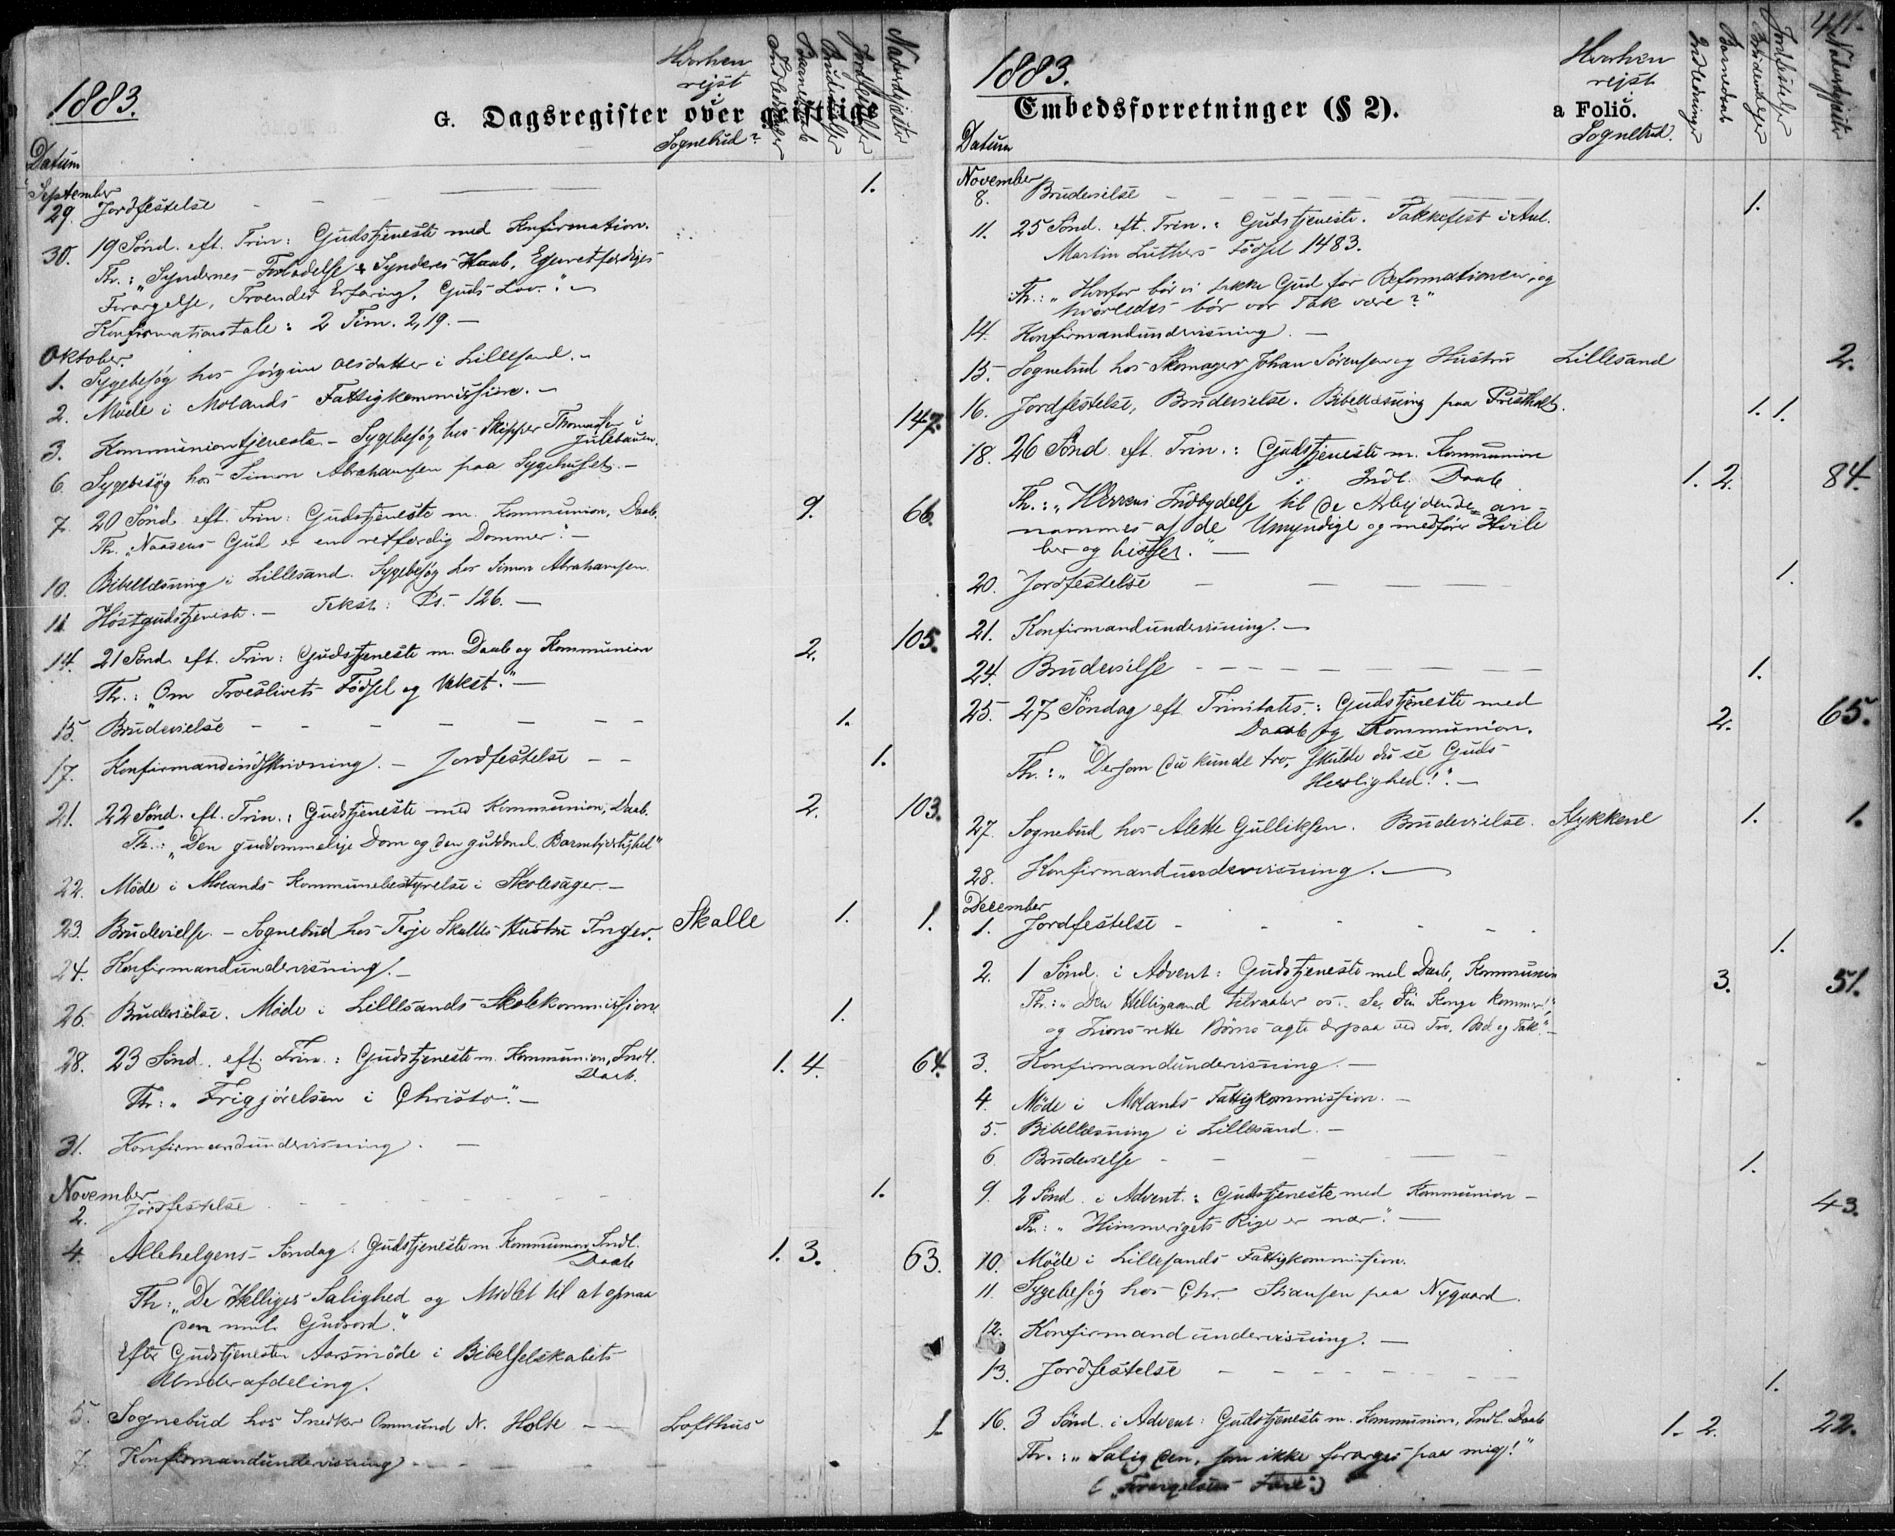 1883.
G. Dagsregister over geistlige
Hvorhen
rejst
i
Sognebud?
Indledninger
Barnedaab
Brudevielser
Jordfestelser
Nadverdgjester
Datum
September
29. Jordfestelse - - 1.
30. 19 Sønd. eft. Trin: Gudstjeneste med Konfirmation.
Th.: "Syndernes Forladelse: Synderes Haab, Egenretfærdiges
Forargelse, Troendes Erfaring, Guds Lov." -
Konfirmationstale: 2 Tim. 2,19. -
Oktober.
1. Sygebesøg hos Jørgine Olsdatter i Lillesand. -
2. Møde i Molands Fattigkommission. -
3. Kommuniontjeneste - Sygebesøg hos Skipper Thomassen i 147.
Julebauen.
6. Sygebesøg hos Simon Abrahamsen paa Sygehuset. -
7. 20 Sønd. eft. Trin: Gudstjeneste m. Kommunion, Daab. 9. 66.
Th. "Naadens Gud er en retfærdig Dommer". -
10. Bibellæsning i Lillesand. Sygebesøg hos Simon Abrahamsen.
11 Høstgudstjeneste. - Tekst: Ps. 126. -
14. 21 Sønd. eft. Trin: Gudstjeneste m. Daab og Kommunion 2. 105.
Th.: "Om Troeslivets Fødsel og Vekst." -
15. Brudevielse - - - - - - - 1.
17. Konfirmandindskrivning. - Jordfestelse - - 1.
21. 22 Sønd. eft. Trin.: Gudstjeneste med Kommunion, Daab. 2. 103.
Th.: "Den guddommelige Dom og den guddml. Barmhjertighed"
22. Møde i Molands Kommunebestyrelse i Skolesager. -
23. Brudevielse. - Sognebud hos Terje Skalles Hustru Inger. Skalle 1. 1.
24. Konfirmandundervisning. -
26. Brudevielse. Møde i Lillesands Skolekommission. 1.
28. 23 Sønd. eft. Trin.: Gudstjeneste m. Kommunion, Indl. 1. 4. 64.
Daab.
Th: "Frigjørelsen i Christo". -
31. Konfirmandundervisning. -
November
2. Jordfestelse - - - - 1.
4. Allehelgens-Søndag: Gudstjeneste m. Kommunion, Indl. 1. 3. 63.
Daab
Th: "De Helliges Salighed og Midlet til at opnaa
den Guds ord."
Efter Gudstjenesten Aarsmøde i Bibelselskabets
Underafdeling.
5. Sognebud hos Snedker Ommund N. Holte - - Lofthus 1.
7. Konfirmandundervisning - - - -
1883.
Embedsforretninger (§ 2).
a Folio.
Hvorhen
rejst
i
Sognebud.
Indledninger
Barnedaab
Brudevielser
Jordfestelser
Nadverdgjester
Datum
November
8. Brudevielse - - - - - - 1.
11. 25 Sønd. eft. Trin.: Gudstjeneste. Takkefest i Anl.
Martin Luthers Fødsel 1483.
Th.: "Hvorfor bør vi takke Gud for Reformationen, og
hvorledes bør vor Tak være?"
14. Konfirmandundervisning. -
15. Sognebud hos Skomager Johan Sørensen og Hustru Lillesand 2.
16. Jordfestelse, Brudevielse. Bibellæsning paa Prestholt. 1. 1.
18. 26 Sønd. eft. Trin.: Gudstjeneste m. Kommunion
Indl. Daab 1. 2. 84.
Th.: "Herrens Indbydelse til de Arbejdende an-
nammes af de Umyndige og medfører Hvile
her og hisset." -
20. Jordfestelse - - - - 1.
21. Konfirmandundervisning. -
24. Brudevielse - - - - - - 1.
25. 27 Søndag eft. Trinitatis.: Gudstjeneste med
Daab og Kommunion. 2. 65.
Th.: "Dersom du kunde tro, skulde du se Guds
Herlighed!". -
27. Sognebud hos Alette Gulliksen. Brudevielse. Aykkene 1. 1.
28. Konfirmandundervisning. -
December
1. Jordfestelse - - - - 1.
2. 1 Sønd. i Advent: Gudstjeneste med Daab, Kommunion 3. 51.
Th.: "Den Helligaand tilraaber os: Se, din Konge kommer!"
og Zions rette Børn agte derpaa ved Tro, Bod og Tak". -
3. Konfirmandundervisning. -
4. Møde i Molands Fattigkommission. -
5. Bibellæsning i Lillesand. -
6. Brudevielse - - - - 1.
9. 2 Sønd. i Advent.: Gudstjeneste med Kommunion - 43.
Th.: "Himmeriges Rige er nær". -
10. Møde i Lillesands Fattigkommission.
11. Sygebesøg hos Chr. paa Nygaard.
12. Konfirmandundervisning. -
13. Jordfestelse - - - - - - 1.
16. 3 Sønd. i Advent: Gudstjeneste m. Kommunion, Indl. Daab 1. 2. 22.
Th.: "Salig den, som ikke forarges paa mig!"
(Forargelsens Fare:)